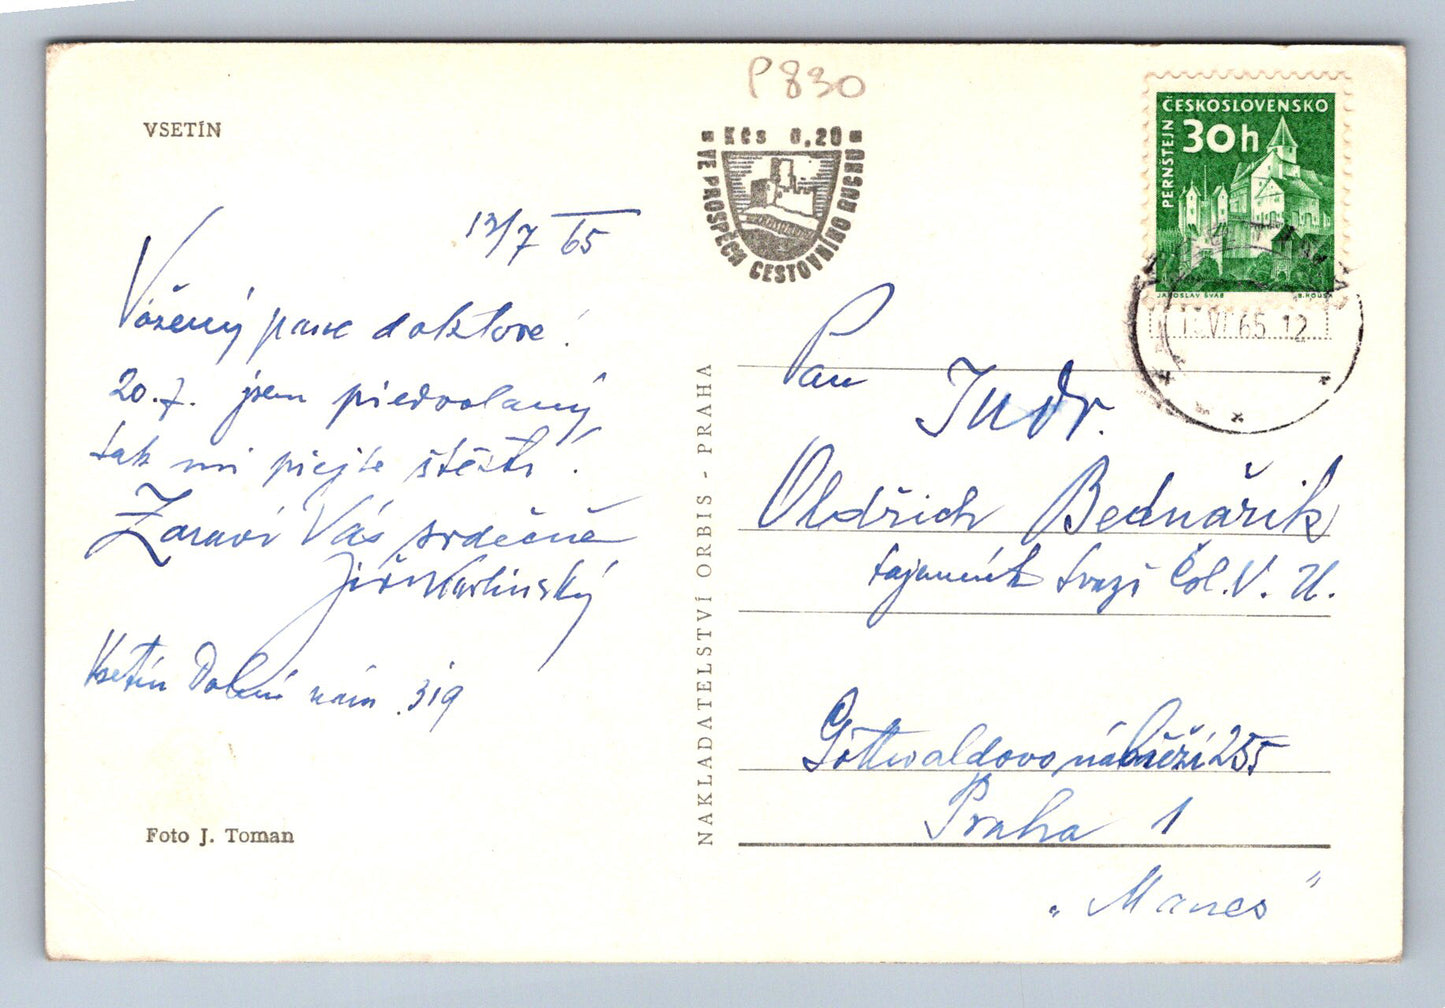 P830
VSETÍN
Kčs 0,20
VE PROSPĚCH CESTOVNÍHO RUCHU
ČESKOSLOVENSKO
30h
PERNŠTEJN
JAROSLAV ŠVÁB
65 12
12/7 65
Vážený pane doktore!
20.7. jsem předvolaný
tak mi přejte štěstí!
Zdraví Vás srdečně
Jiří
Vsetín Dolní nám. 319
Foto J. Toman
NAKLADATELSTVÍ ORBIS - PRAHA
Pan
Judr.
Oldřich Bednářik
tajemník Svazu Čsl. V. U.
Gottwaldovo nábřeží 255
Praha 1
„Manes"